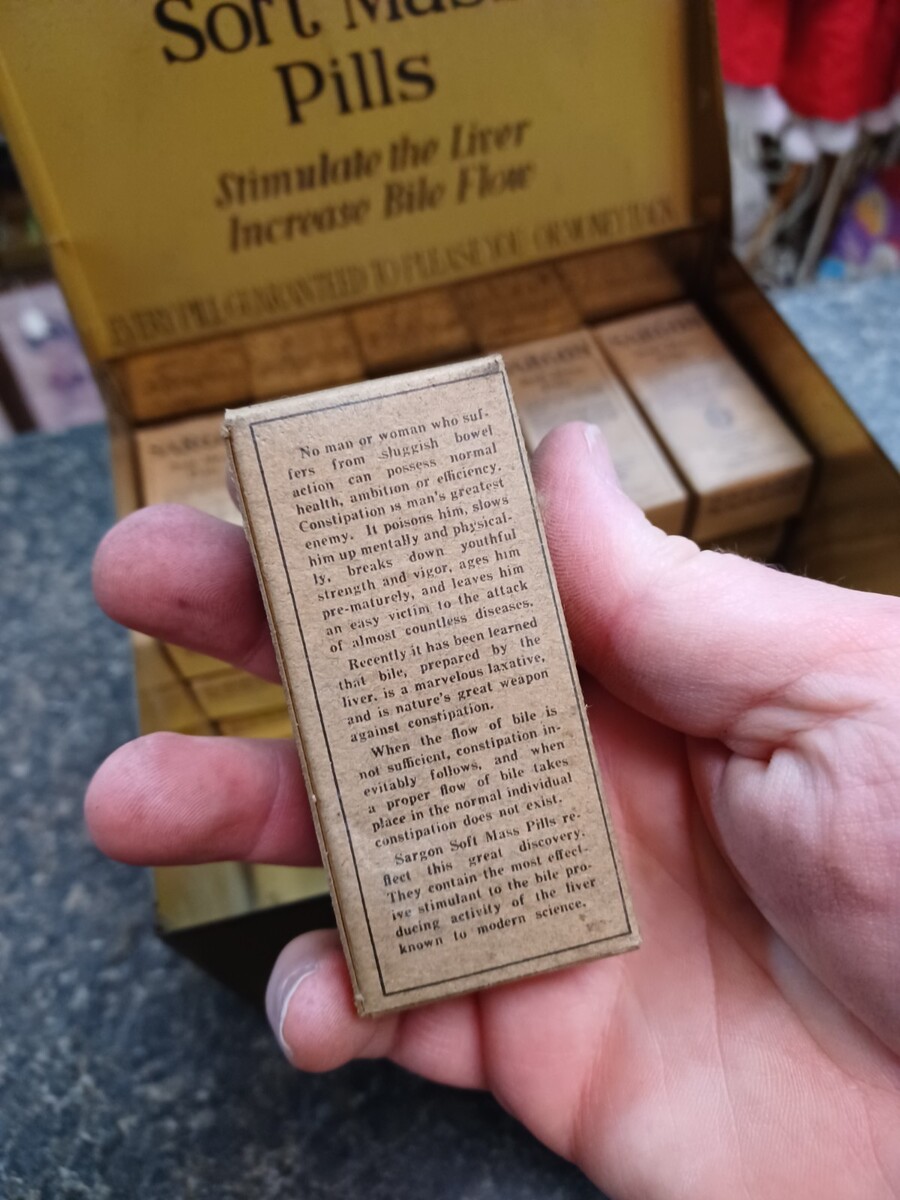 Soft Mass
Pills
Stimulate the Liver
Increase Bile Flow
EVERY PILL GUARANTEED TO PLEASE YOU OR MONEY BACK
No man or woman who suf-
fers from sluggish bowel
action can possess normal
health, ambition or efficiency.
Constipation is man's greatest
enemy. It poisons him, slows
him up mentally and physical-
ly, breaks down youthful
strength and vigor, ages him
pre-maturely, and leaves him
an easy victim to the attack
of almost countless diseases.
Recently it has been learned
that bile, prepared by the
liver, is a marvelous laxative,
and is nature's great weapon
against constipation.
When the flow of bile is
not sufficient, constipation in-
evitably follows, and when
a proper flow of bile takes
place in the normal individual
constipation does not exist.
Sargon Soft Mass Pills re-
flect this great discovery.
They contain the most effect-
ive stimulant to the bile pro-
ducing activity of the liver
known to modern science.